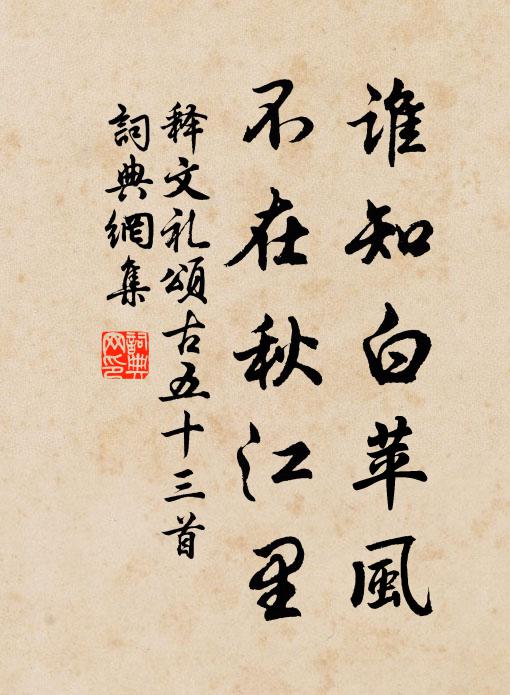 誰知白苹風
不在秋江里
释文礼頌古五十三首
詞典網集
詞典网印